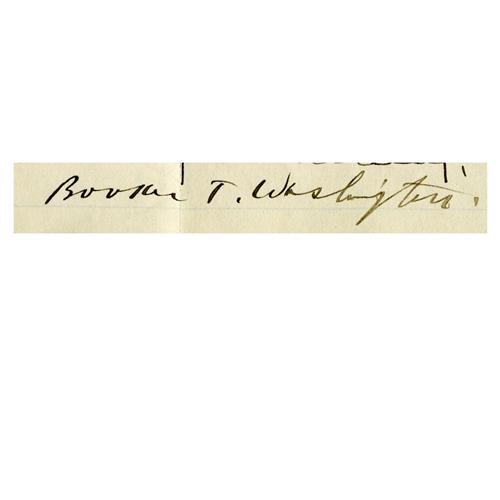 Booker T. Washington.